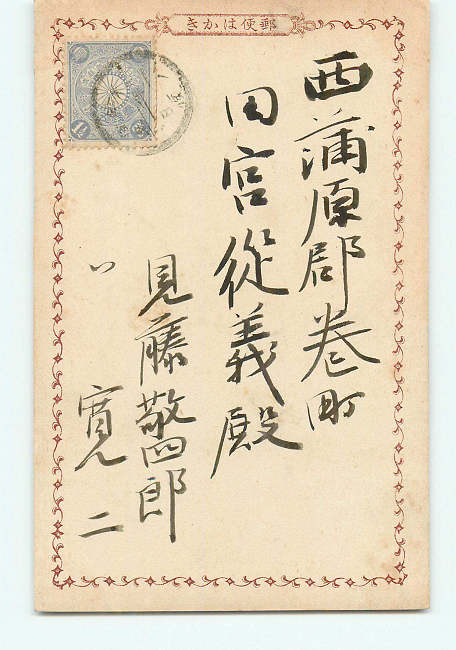 きかは便郵
西蒲原郡巻町
田宮従義殿
見藤敬四郎
〃 寛二
1½